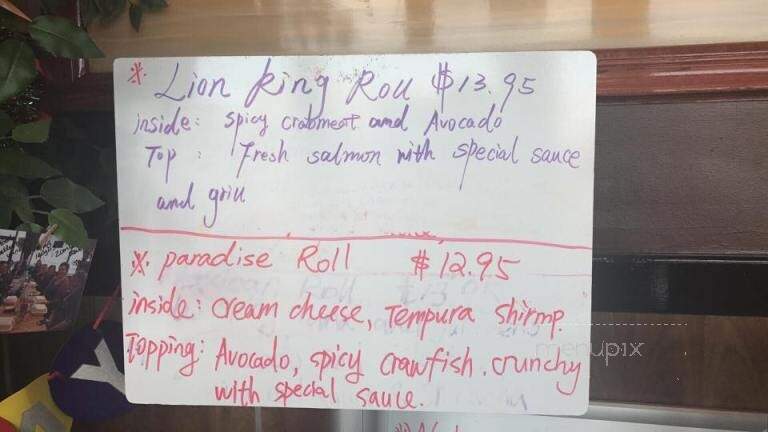 ※ Lion King Roll $13.95
inside: spicy crabmeat and Avocado
Top : Fresh salmon with special sauce
and grill
※ paradise Roll $12.95
inside: cream cheese, Tempura shirmp.
Topping: Avocado, spicy crawfish. crunchy
with special sauce.
menupix